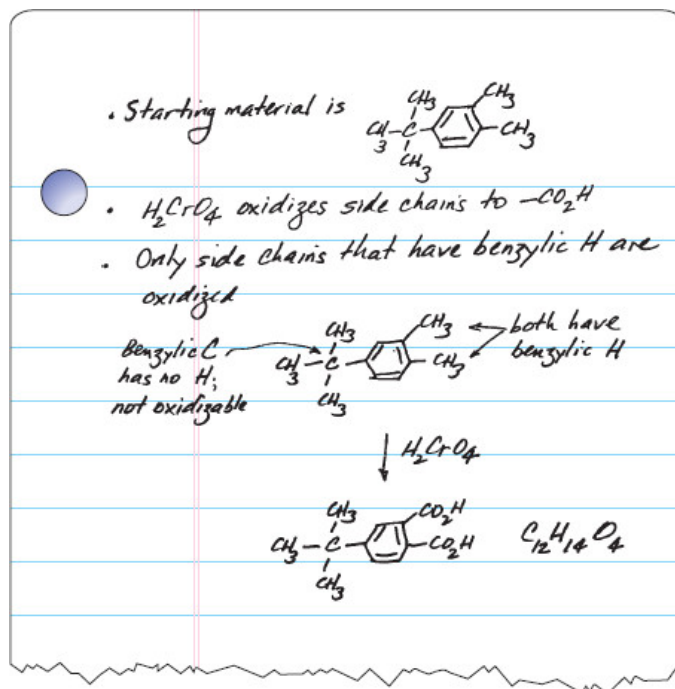 · Starting material is
CH3
CH3
CH3-C
CH3
CH3
· H2CrO4 oxidizes side chains to -CO2H
· Only side chains that have benzylic H are
oxidized
Benzylic C
has no H;
not oxidizable
CH3
CH3-C
CH3
CH3
CH3
both have
benzylic H
H2CrO4
CH3
CH3-C
CH3
CO2H
CO2H
C12H14O4